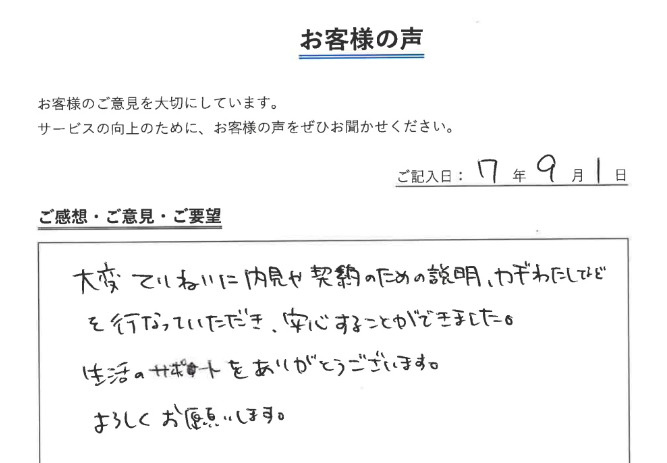 お客様の声
お客様のご意見を大切にしています。
サービスの向上のために、お客様の声をぜひお聞かせください。
ご記入日： 7 年 9 月 1 日
ご感想・ご意見・ご要望
大変 ていねいに内見や契約のための説明、カギわたしなど
を行なっていただき、安心することができました。
生活のサポートをありがとうございます。
よろしくお願いします。